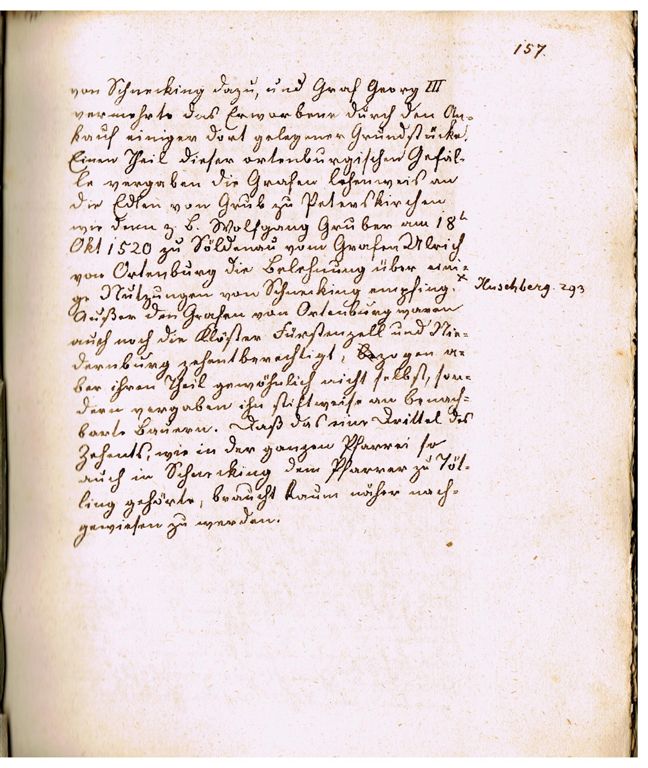 157.
von Schnecking dazu, und Graf Georg III
vermehrte das Erworbene durch den An-
kauf einiger dort gelegener Grundstücke.
Einen Theil dieser ortenburgischen Gefäl-
le vergaben die Grafen lehenweis an
die Edlen von Grub zu Peterskirchen
wie denn z. B. Wolfgang Gruber am 18t
Okt 1520 zu Söldenau vom Grafen Ulrich
von Ortenburg die Belehnung über eini-
ge Nutzungen von Schnecking empfing. x Huschberg. 293
Außer den Grafen von Ortenburg waren
auch noch die Klöster Fürstenzell und Nie-
dernburg zehentberechtigt, bezogen a-
ber ihren Theil gewöhnlich nicht selbst, son-
dern vergaben ihn stiftweise an benach-
barte Bauern. Daß das eine Drittel des
Zehents, wie in der ganzen Pfarrei so
auch in Schnecking dem Pfarrer zu Töt-
ling gehörte, braucht kaum näher nach-
gewiesen zu werden.